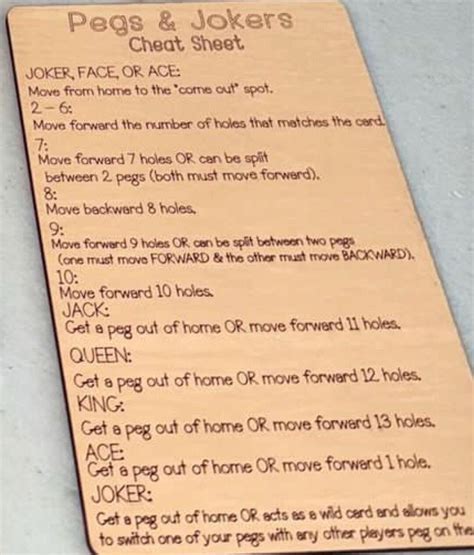 Pegs & Jokers
Cheat Sheet
JOKER, FACE, OR ACE:
Move from home to the "come out" spot.
2 - 6:
Move forward the number of holes that matches the card.
7:
Move forward 7 holes OR can be split
between 2 pegs (both must move forward).
8:
Move backward 8 holes.
9:
Move forward 9 holes OR can be split between two pegs
(one must move FORWARD & the other must move BACKWARD).
10:
Move forward 10 holes.
JACK:
Get a peg out of home OR move forward 11 holes.
QUEEN:
Get a peg out of home OR move forward 12 holes.
KING:
Get a peg out of home OR move forward 13 holes.
ACE:
Get a peg out of home OR move forward 1 hole.
JOKER:
Get a peg out of home OR acts as a wild card and allows you
to switch one of your pegs with any other players peg on the